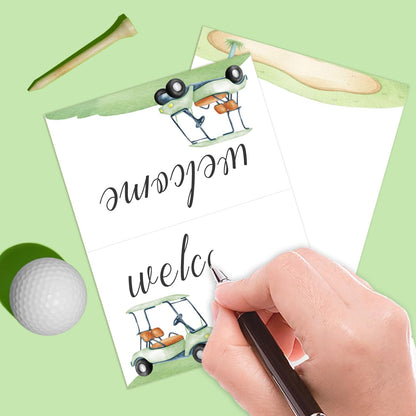 welcome
welco